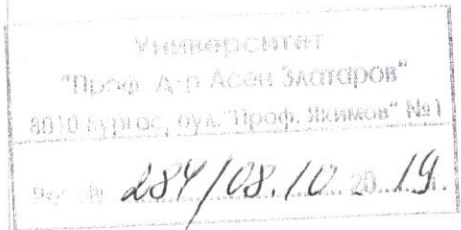 Университет
"Проф. д-р Асен Златаров"
8010 Бургас, бул. "Проф. Якимов" №1
284/08.10. 2019.